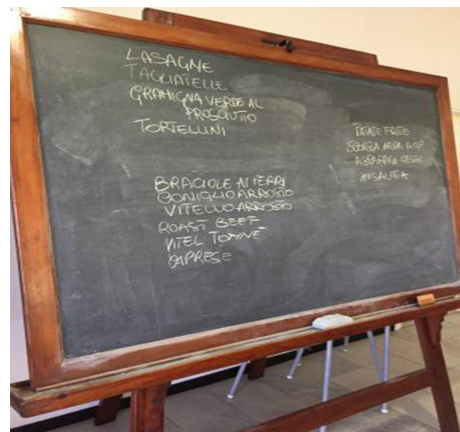 LASAGNE
TAGLIATELLE
GRAMIGNA VERDE AL
PROSCIUTTO
TORTELLINI
BRACIOLE AI FERRI
CONIGLIO ARROSTO
VITELLO ARROSTO
ROAST BEEF
VITEL TONNÈ
CAPRESE
PATATE FRITTE
INSALATA